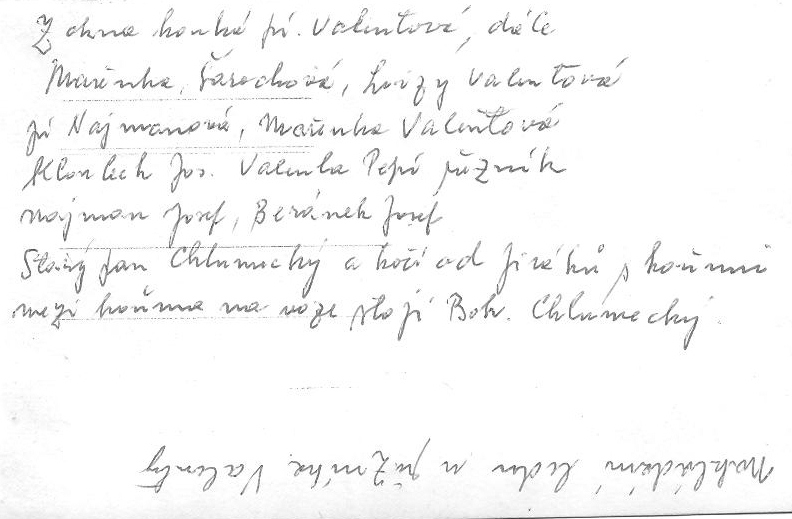 Z okna kouká pí. Valentová, dále
Mařenka, Šarochová, Luizy Valentová
pí Najmanová, Mařenka Valentová
Kloulech Jos. Valenta Pepi řezník
Najman Josef, Beránek Josef
Starý Jan Chlumecký a kočí od Jiráků s koňmi
mezi koňma na voze stojí Boh. Chlumecký.
Nakládání ledu u řezníka Valenty